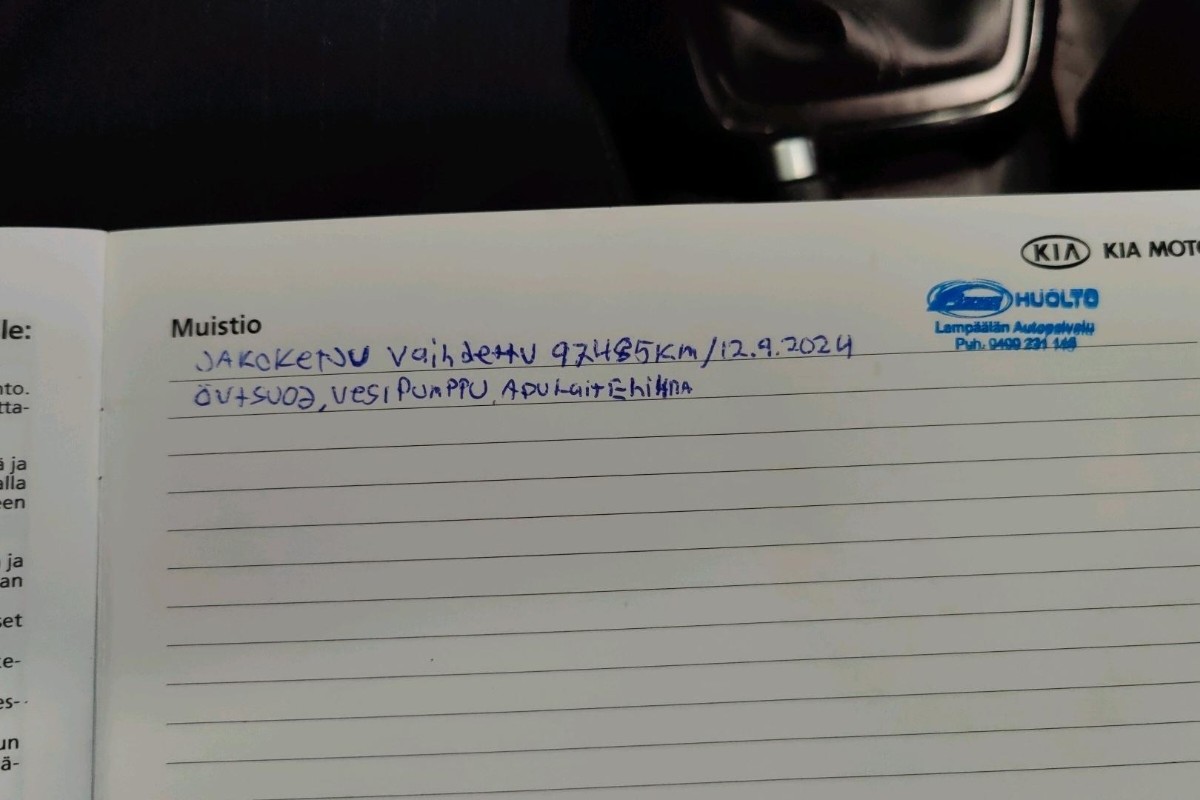 KIA KIA MOTO
HUOLTO
Lempäälän Autopalvelu
Puh. 0400 231 146
le:
Muistio
JAKOKETJU Vaihdettu 97485km/12.9.2024
ÖVtSUOD, VESIPUMPPU, APULaitEhihNA
nto.
tta-
ä ja
alla
een
ja
an
set
ke-
es-
un
ä-